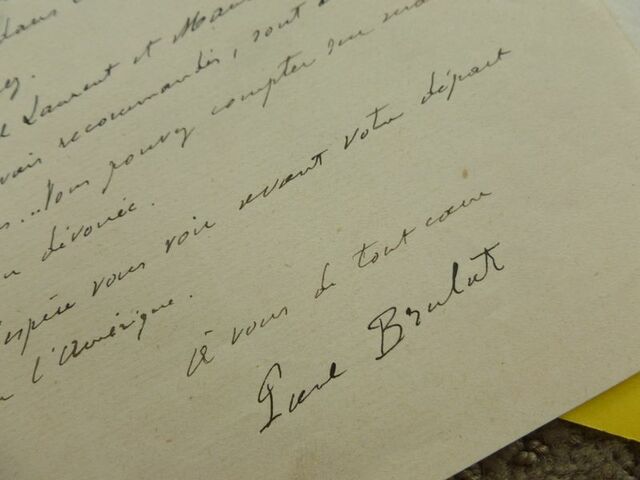 dans
Laurent et
recommandés, sont
...Vous pouvez compter sur
dévouée.
espère vous voir avant votre départ
l'Amérique.
à vous de tout cœur
Paul Brulat